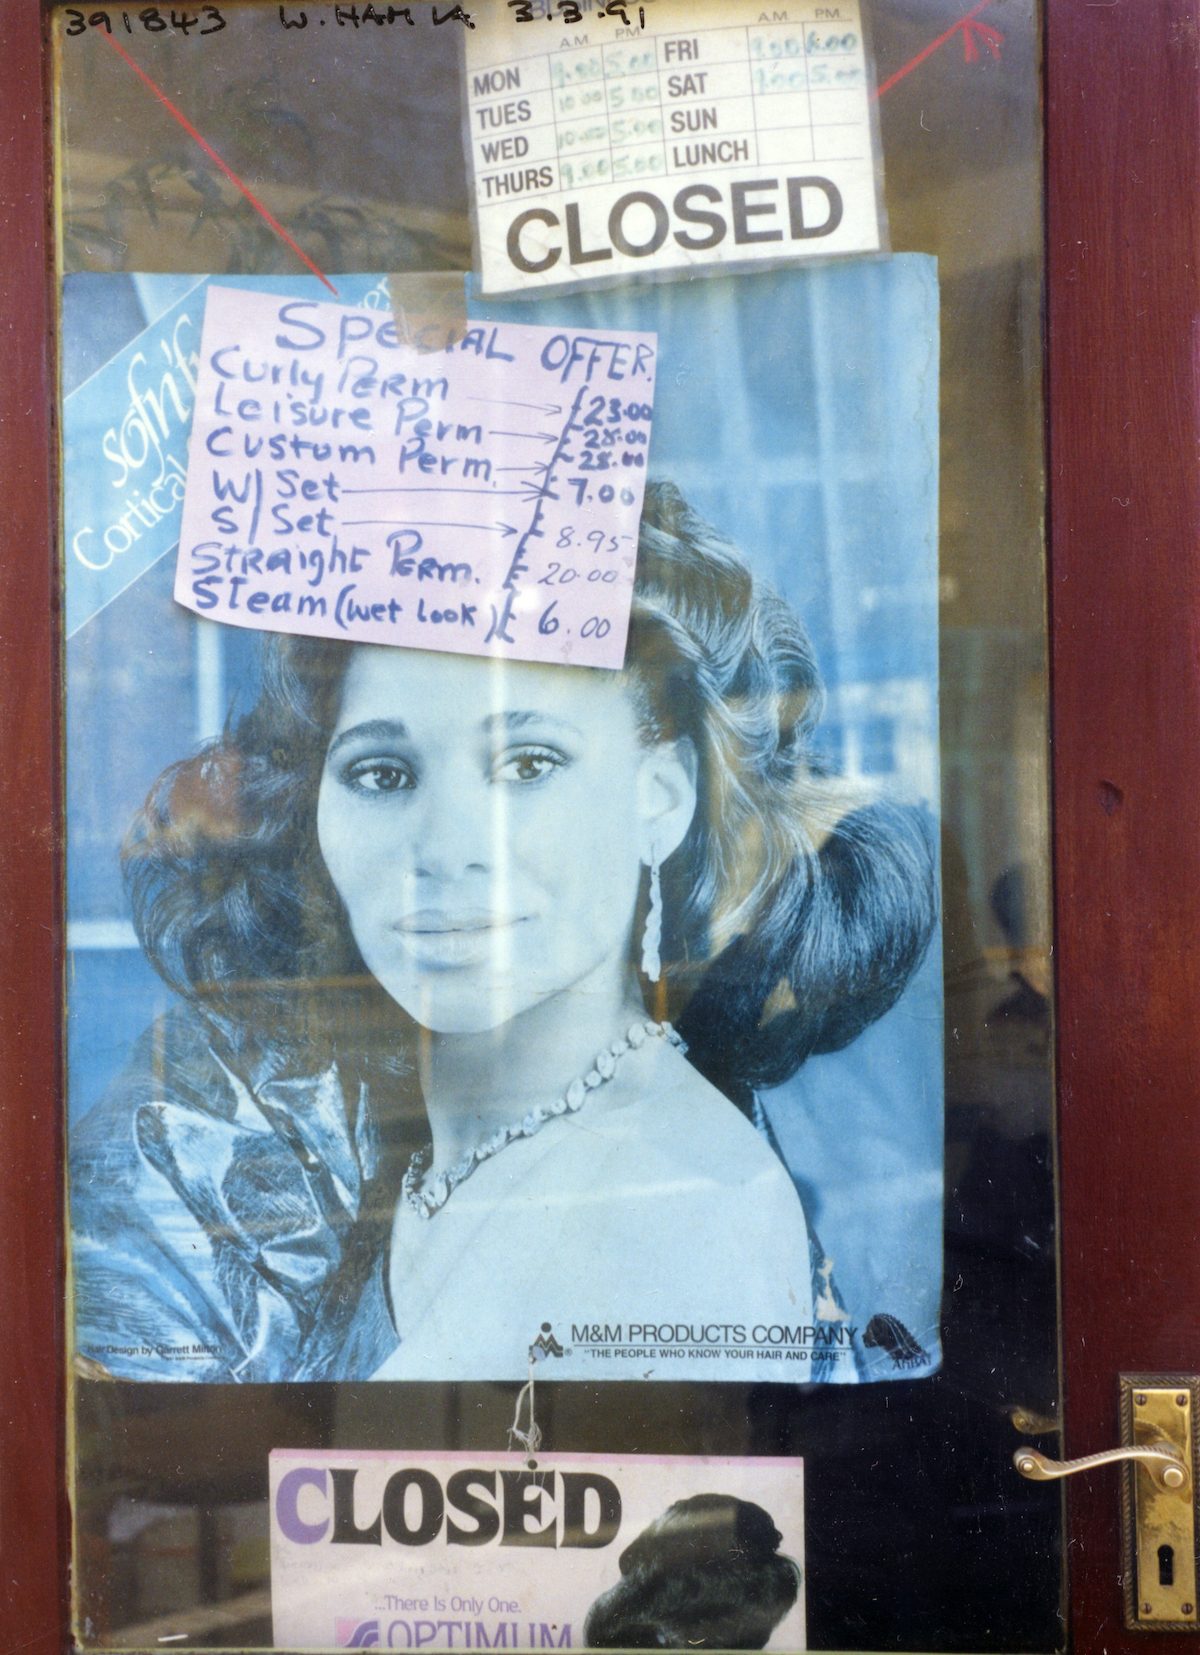 391843 W. HAM LA 3.3.91
A.M. PM. A.M. PM.
MON 9.00 5.00 FRI 9.00 6.00
TUES 10.00 5.00 SAT 9.00 5.00
WED 10.00 5.00 SUN
THURS 9.00 5.00 LUNCH
CLOSED
sofn'f
Cortical
SPECIAL OFFER.
Curly PERM £23.00
Leisure Perm £ 28.00
Custom Perm. £ 28.00
W/ Set £ 7.00
S/ Set £ 8.95
STRaight PERM. £ 20.00
STeam (wet look) £ 6.00
Hair Design by Garrett Milton
M&M PRODUCTS COMPANY
"THE PEOPLE WHO KNOW YOUR HAIR AND CARE"
CLOSED
...There Is Only One.
OPTIMUM